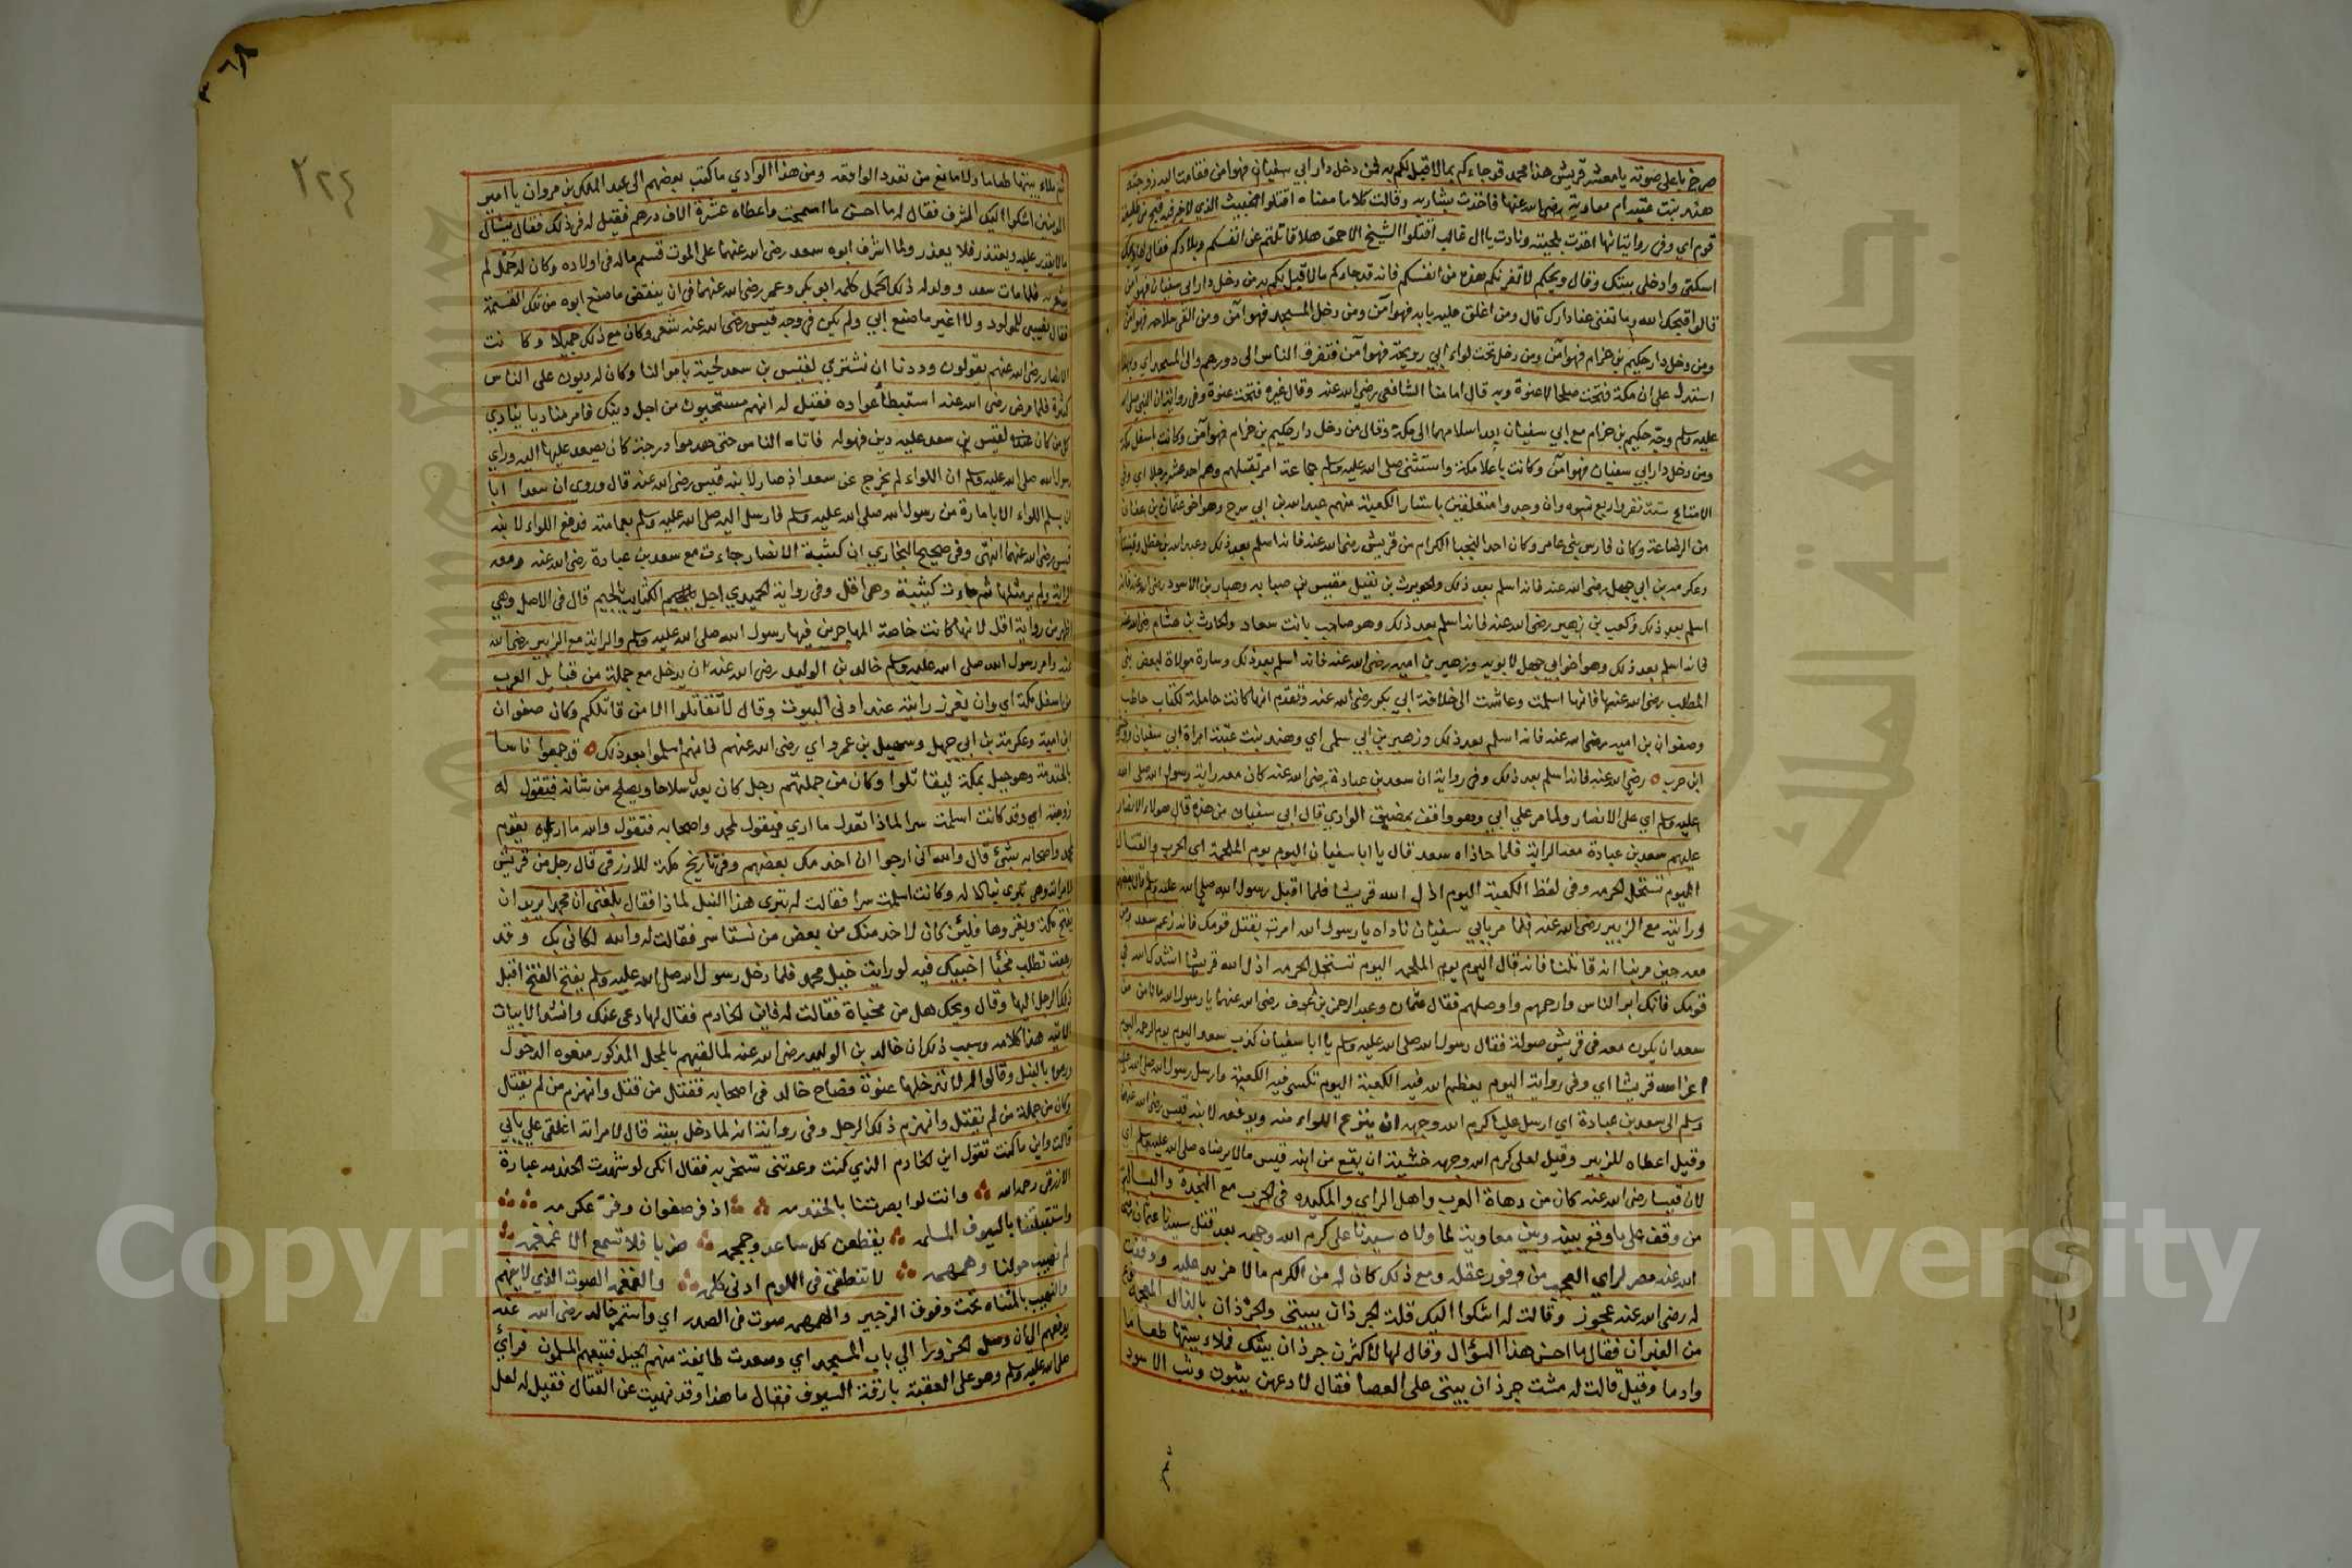 صرخ باعلى صوته يا معشر قريش هذا محمد قد جاءكم بمالا قبل لكم به فمن دخل دار ابي سفيان فهو امن فقامت اليه زوجته
هند بنت عتبة ام معاوية رضى الله عنها فاخذت بشاربه وقالت كلاما معناه اقتلوا الخبيث الذي لا خير فيه قبح من طليعة
قوم اي وفى رواية انها اخذت بلحيته ونادت يا ال غالب اقتلوا الشيخ الاحمق هلا قاتلتم عن انفسكم وبلادكم فقال لها ويحك
اسكتى وادخلى بيتك وقال ويحكم لا تغرنكم هذه من انفسكم فانه قد جاءكم مالا قبل لكم به من دخل دار ابى سفيان فهو آمن
قالوا قبحك الله وما تغنى عنا دارك قال ومن اغلق عليه بابه فهو آمن ومن دخل المسجد فهو آمن ومن القى سلاحه فهو آمن
ومن دخل دار حكيم بن حزام فهو آمن ومن دخل تحت لواء ابي رويحة فهو آمن فتفرق الناس الى دورهم والى المسجد اي وبهذا
استدل على ان مكة فتحت صلحا لا عنوة وبه قال امامنا الشافعى رضى الله عنه وقال غيره فتحت عنوة وفى رواية ان النبى صلى الله
عليه وسلم وجه حكيم بن حزام مع ابي سفيان بعد اسلامهما الى مكة وقال من دخل دار حكيم بن حزام فهو آمن وكانت باسفل مكة
ومن دخل دار ابي سفيان فهو آمن وكانت باعلا مكة واستثنى صلى الله عليه وسلم جماعة امر بقتلهم وهم احد عشر رجلا اي وفى
الامتاع ستة نفر واربع نسوة وان وجدوا متعلقين باستار الكعبة منهم عبد الله بن ابي سرح وهو اخو عثمان بن عفان
من الرضاعة وكان فارس بني عامر وكان احد النجبا الكرام من قريش رضى الله عنه فانه اسلم بعد ذلك وعبد الله بن خطل وقينتاه
وعكرمه بن ابي جهل رضى الله عنه فانه اسلم بعد ذلك والحويرث بن نقيل ومقيس بن صبابه وهبار بن الاسود رضى الله عنه فانه
اسلم بعد ذلك وكعب بن زهير رضى الله عنه فانه اسلم بعد ذلك وهو صاحب بانت سعاد والحارث بن هشام رضى الله عنه
فانه اسلم بعد ذلك وهو اخو ابي جهل لابويه وزهير بن اميه رضى الله عنه فانه اسلم بعد ذلك وسارة مولاة لبعض بني
المطلب رضى الله عنها فانها اسلمت وعاشت الى خلافة ابي بكر رضى الله عنه وتقدم انها كانت حاملة لكتاب حاطب
وصفوان بن اميه رضى الله عنه فانه اسلم بعد ذلك وزهير بن ابي سلمى اي وهند بنت عتبة امراة ابي سفيان
ابن حرب رضى الله عنه فانه اسلم بعد ذلك وفى رواية ان سعد بن عبادة رضى الله عنه كان معه راية رسول الله صلى الله
عليه وسلم اي على الانصار ولما مر علي ابي وهو واقف بمضيق الوادي قال ابي سفيان من هذه قال هولاء الانصار
عليهم سعد بن عبادة معه الراية فلما حاذاه سعد قال يا ابا سفيان اليوم يوم الملحمة اي الحرب والقتال
اليوم تستحل الحرمه وفى لفظ الكعبة اليوم اذل الله قريشا فلما اقبل رسول الله صلى الله عليه وسلم
ورايته مع الزبير رضى الله عنه فلما مر بابي سفيان ناداه يا رسول الله امرت بقتل قومك فانه زعم سعد ومن
معه حين مر بنا انه قاتلنا فانه قال اليوم يوم الملحمه اليوم تستحل الحرمه اذل الله قريشا انشدك الله في
قومك فانك ابر الناس وارحمهم واوصلهم فقال عثمان وعبد الرحمن بن عوف رضى الله عنهما يا رسول الله ما نامن من
سعد ان يكون معه فى قريش صولة فقال رسول الله صلى الله عليه وسلم يا ابا سفيان كذب سعد اليوم يوم الرحمه اليوم
اعز الله قريشا اي وفى رواية اليوم يعظم الله فيه الكعبة اليوم تكسى فيه الكعبة وارسل رسول الله صلى الله عليه
وسلم الى سعد بن عبادة اي ارسل عليا كرم الله وجهه ان ينزع اللواء منه ويدفعه لابنه قيس رضى الله عنهما
وقيل اعطاه للزبير وقيل لعلى كرم الله وجهه خشية ان يقع من ابنه قيس مالا يرضاه صلى الله عليه وسلم اي
لان قيسا رضى الله عنه كان من دهاة العرب واهل الراي والمكيده فى الحرب مع النجدة والبسالة
من وقف على ما وقع بينه وبين معاوية لما ولاه سيدنا على كرم الله وجهه بعد قتل سيدنا عثمان رضى
الله عنه مصر لراي العجب من وفور عقله ومع ذلك كان له من الكرم مالا مزيد عليه ووقفت
له رضى الله عنه عجوز وقالت له اشكوا اليك قلت لجرذان ببيتى والجرذان بالذال المعجمة
من الفيران فقال ما احسن هذا السؤال وقال لها لاكثرن جرذان بيتك فملاء بيتها طعاما
وادما وقيل قالت له مشت جرذان بيتى على العصا فقال لادعهن يثبون وثب الاسود
ثم
٢٢٤
ثم ملاء بيتها طعاما ولا مانع من تعدد الواقعه ومن هذا الوادي ما كتب بعضهم الى عبد الملك بن مروان يا امير
المومنين اشكوا اليك الشرف فقال له ما احسن ما استمحت واعطاه عشرة الاف درهم فقيل له فى ذلك فقال يسال
مالا يقدر عليه ويعتذر فلا يعذر ولما اشرف ابوه سعد رضى الله عنهما على الموت قسم ماله فى اولاده وكان له حمل لم
يشعر به فلما مات سعد وولد له ذلك الحمل كلمه ابو بكر وعمر رضى الله عنهما فى ان ينقض ما صنع ابوه من تلك القسمة
فقال نصيبى للمولود ولا اغير ما صنع ابي ولم يكن فى وجه قيس رضى الله عنه شعر وكان مع ذلك جميلا وكانت
الانصار رضى الله عنهم يقولون وددنا ان نشتري لقيس بن سعد لحية باموالنا وكان له ديون على الناس
كثيرة فلما مرض رضى الله عنه استبطأ عواده فقيل له انهم مستحيون من اجل دينك فامر مناديا ينادي
كل من كان لقيس بن سعد عليه دين فهو له فاتاه الناس حتى هدموا درجة كان يصعد عليها اليه وراي
رسول الله صلى الله عليه وسلم ان اللواء لم يخرج عن سعد اذ صار لابنه قيس رضى الله عنه قال وروي ان سعدا ابا
ان يسلم اللواء الا بامارة من رسول الله صلى الله عليه وسلم فارسل اليه صلى الله عليه وسلم بعمامته فدفع اللواء لابنه
قيس رضى الله عنهما انتهى وفى صحيح البخاري ان كتيبة الانصار جاءت مع سعد بن عبادة رضى الله عنه ومعه
الراية ولم ير مثلها ثم جاءت كتيبة وهى اقل وفى رواية الحميدي اجل الكتايب بالجيم قال فى الاصل وهى
اظهر من رواية اقل لانها كانت خاصة المهاجرين فيها رسول الله صلى الله عليه وسلم والراية مع الزبير رضى الله
عنه وامر رسول الله صلى الله عليه وسلم خالد بن الوليد رضى الله عنه ان يدخل مع جملة من قبايل العرب
من اسفل مكة اي وان يغرز رايته عند ادنى البيوت وقال لا تقاتلوا الا من قاتلكم وكان صفوان
ابن امية وعكرمة بن ابي جهل وسهيل بن عمرو اي رضى الله عنهم فانهم اسلموا بعد ذلك قد جمعوا ناسا
بالخندمة وهو جبل بمكة ليقاتلوا وكان من جملتهم رجل كان يعد سلاحا ويصلح من شانه فتقول له
زوجته اي وقد كانت اسلمت سرا لماذا تعد ما اري فيقول لمحمد واصحابه فتقول والله ما اراه يقوم
لمحمد واصحابه بشئ قال والله انى ارجوا ان اخدمك بعضهم وفى تاريخ مكة للازرقى قال رجل من قريش
لامراته وهى تبري نبالا له وكانت اسلمت سرا فقالت له تبرى هذا النبل لماذا فقال بلغنى ان محمدا يريد ان
يفتح مكة ويغزوها فلئن كان لاخدمنك من بعض من نستاسر فقالت له والله لكانى بك وقد
رجعت تطلب مخبئا اخبيك فيه لو رايت خيل محمد فلما دخل رسول الله صلى الله عليه وسلم يفتح الفتح اقبل
ذلك الرجل اليها وقال ويحك هل من مخباة فقالت له فاين الخادم فقال لها دعى عنك وانشد الابيات
الاتيه هذا كلامه وسبب ذلك ان خالد بن الوليد رضى الله عنه لما لقيهم بالمحل المذكور منعوه الدخول
ورموه بالنبل وقالوا له لا تدخلها عنوة فصاح خالد فى اصحابه فقتل من قتل وانهزم من لم يقتل
وكان من جملة من لم يقتل وانهزم ذلك الرجل وفى رواية انه لما دخل بيته قال لامراته اغلقى علي بابي
قالت واين ما كنت تقول اين الخادم الذي كنت وعدتنى تسخر به فقال انكى لو شهدت الخندمه عبارة
الازرقى رحمه الله وانت لو ابصرتنا بالخندمه اذ فر صفوان وفر عكرمه
واستقبلتنا بالسيوف المسلمه يقطعن كل ساعد وجمجمه ضربا فلا تسمع الا غمغمه
لم نهيب حولنا وهمهمه لا تنطقى فى اللوم ادنى كلمه والغمغمه الصوت الذي لا يفهم
والنهيب بالمثناه تحت وفوق الزحير والهمهمه صوت فى الصدر اي واستمر خالد رضى الله عنه
يدفعهم الى ان وصل الحزورا الي باب المسجد اي وصعدت طايفة منهم الجبل فتبعهم المسلمون فرأي
صلى الله عليه وسلم وهو على العقبة بارقة السيوف فقال ما هذا وقد نهيت عن القتال فقيل له لعل
Copyright © King Saud University
جامعة الملك سعود